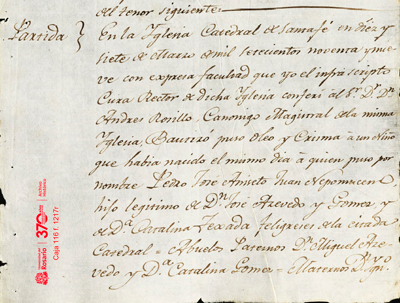 al tenor siguiente.
Partida } En la Yglecia Catedral de Santafé en diez y
siete de Marzo de mil setecientos noventa y nue-
ve con expresa facultad que yo el infrascripto
Cura Rector de dicha Yglecia conferi al Sr. D.r Dn.
Andres Rosillo, Canonigo Magistral de la misma
Yglecia, Bautizó puso Oleo y Crisma a un Niño
que habia nacido el mismo dia a quien puso por
nombre Pedro Jose Aniseto Juan Nepomucen
hijo legitimo de Dn. José Azevedo y Gomez y
de Da. Catalina Texada feligreses de la citada
Catedral = Abuelos Paternos Dn. Miguel Aze-
vedo y Da. Catalina Gomez = Maternos Dn. Ygn.o
Universidad del
Rosario
370
Archivo
Histórico
Caja 116 f. 1217r